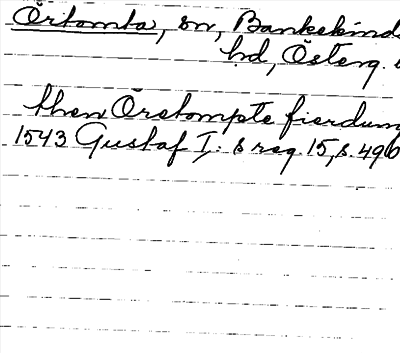 Örtomta, sn, Bankekind
hd, Österg.
then Örstompte fierdum
1543 Gustaf I:s reg. 15, s. 496